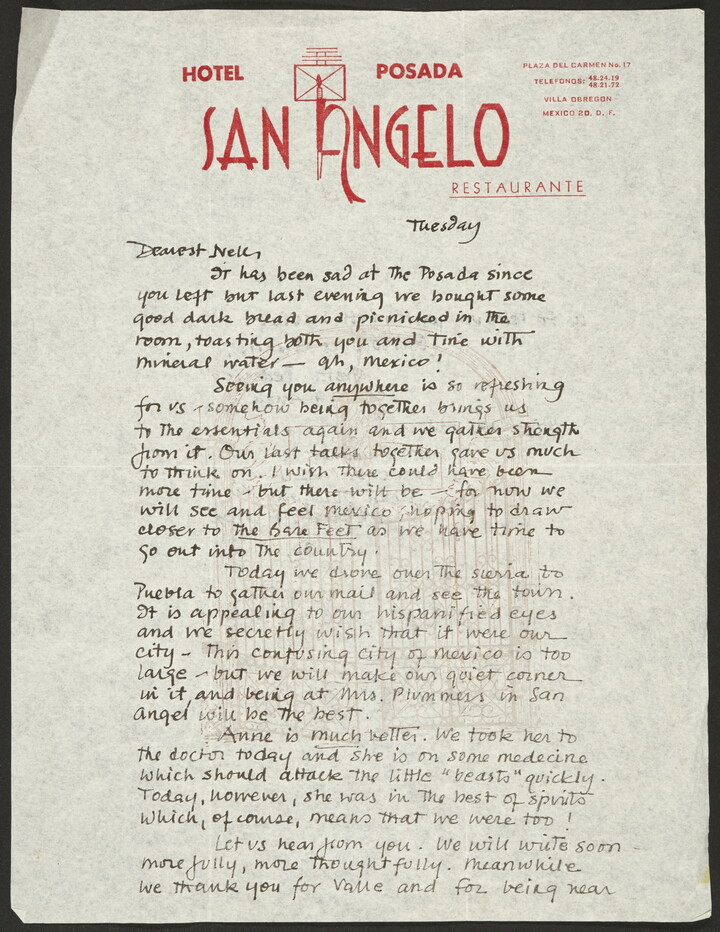 HOTEL POSADA
SAN ANGELO
RESTAURANTE
PLAZA DEL CARMEN No. 17
TELEFONOS: 48-24-19
48-21-72
VILLA OBREGON
MEXICO 20. D. F.
Tuesday
Dearest Nell,
It has been sad at The Posada since
you left but last evening we bought some
good dark bread and picnicked in the
room, toasting both you and Tine with
mineral water — ah, Mexico!
Seeing you anywhere is so refreshing
for us - somehow being together brings us
to the essentials again and we gather strength
from it. Our last talks together gave us much
to think on. I wish there could have been
more time - but there will be - for now we
will see and feel Mexico, hoping to draw
closer to The Bare Feet as we have time to
go out into the country.
Today we drove over the sierra to
Puebla to gather our mail and see the town.
It is appealing to our hispanified eyes
and we secretly wish that it were our
city - This confusing city of Mexico is too
large - but we will make our quiet corner
in it and being at Mrs. Plummer's in San
Angel will be the best.
Anne is much better. We took her to
the doctor today and she is on some medecine
which should attack the little "beasts" quickly.
Today, however, she was in the best of spirits
which, of course, means that we were too!
Let us hear from you. We will write soon -
more fully, more thoughtfully. Meanwhile
we thank you for Valle and for being near